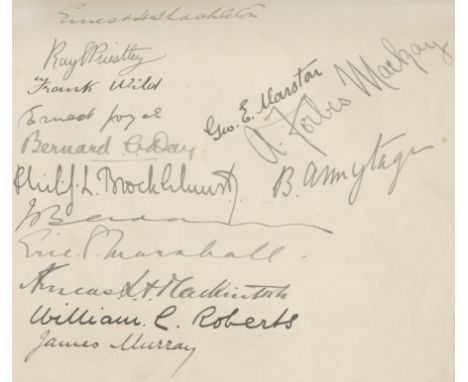 Ernest H Shackleton
Ray E Priestley
Frank Wild
Ernest Joyce
Geo. E. Marston
A. Forbes Mackay
Bernard C. Day
Philip L. Brocklehurst
B. Armytage
Eric S. Marshall.
Aeneas L A Mackintosh
William. C. Roberts
James Murray